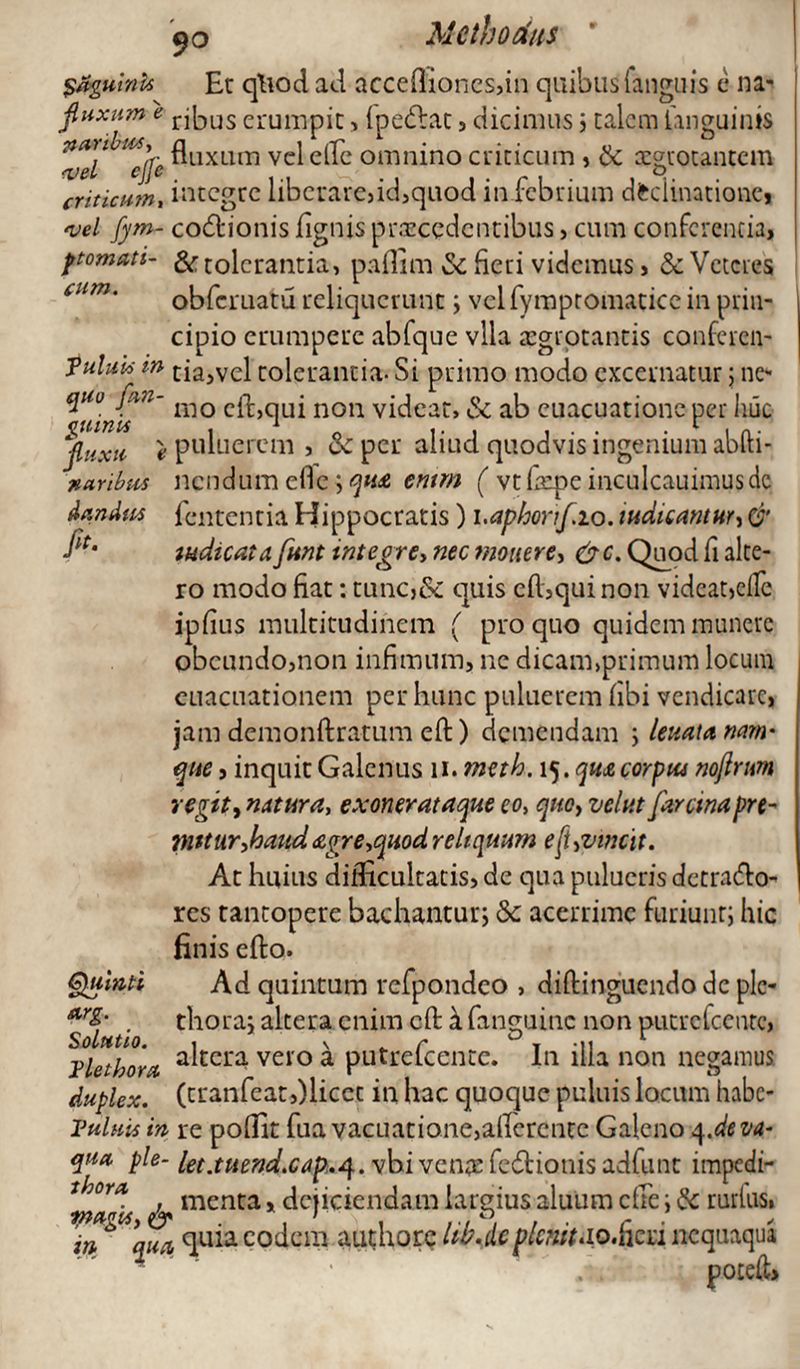 90 Methodus
Et quod ad accessiones,in quibus sanguis è na-
ribus erumpit, spectat, dicimus; talem sanguinis
fluxum vel esse omnino criticum, & ægrotantem
integre liberare,id,quod in febrium declinatione,
coctionis signis præcedentibus, cum conferentia,
& tolerantia, passim & fieri videmus, & Veteres
obseruatũ reliquerunt; vel symptomatice in prin-
cipio erumpere absque vlla ægrotantis conferen-
tia,vel tolerantia. Si primo modo excernatur; ne-
mo est,qui non videat, & ab euacuatione per hũc
puluerem, & per aliud quodvis ingenium absti-
nendum esse; quæ enim ( vt sæpe inculcauimus de
sententia Hippocratis ) 1.aphoris.20. iudicantur,&
iudicata sunt integre, nec mouere, &c. Quod si alte-
ro modo fiat: tunc,& quis est,qui non videat,esse
ipsius multitudinem ( pro quo quidem munere
obeundo,non infimum, ne dicam,primum locum
euacuationem per hunc puluerem sibi vendicare,
jam demonstratum est) demendam ; leuata nam-
que, inquit Galenus 11. meth. 15. quæ corpus nostrum
regit, natura, exonerataque eo, quo, velut sarcina pre-
mitur,haud ægre,quod reliquum est,vincit.
At huius difficultatis, de qua pulueris detracto-
res tantopere bachantur; & acerrime furiunt; hic
finis esto.
Ad quintum respondeo, distinguendo de ple-
thora; altera enim est à sanguine non putrescente,
altera vero à putrescente. In illa non negamus
(transeat,)licet in hac quoque puluis locum habe-
re possit sua vacuatione,asserente Galeno 4.de va-
let.tuend.cap.4. vbi venæ sectionis adsunt impedi-
menta, dejiciendam largius aluum esse; & rursus,
quia eodem authore lib.de plenit.10.fieri nequaquã
potest,
sãguinis
fluxum è
naribus,
vel esse
criticum,
vel sym-
ptomati-
cum.
Puluis in
quo san-
guinis
fluxu è
naribus
dandus
sit.
Quinti
arg.
Solutio.
Plethora
duplex.
Puluis in
qua ple-
thora
magis, &
in qua